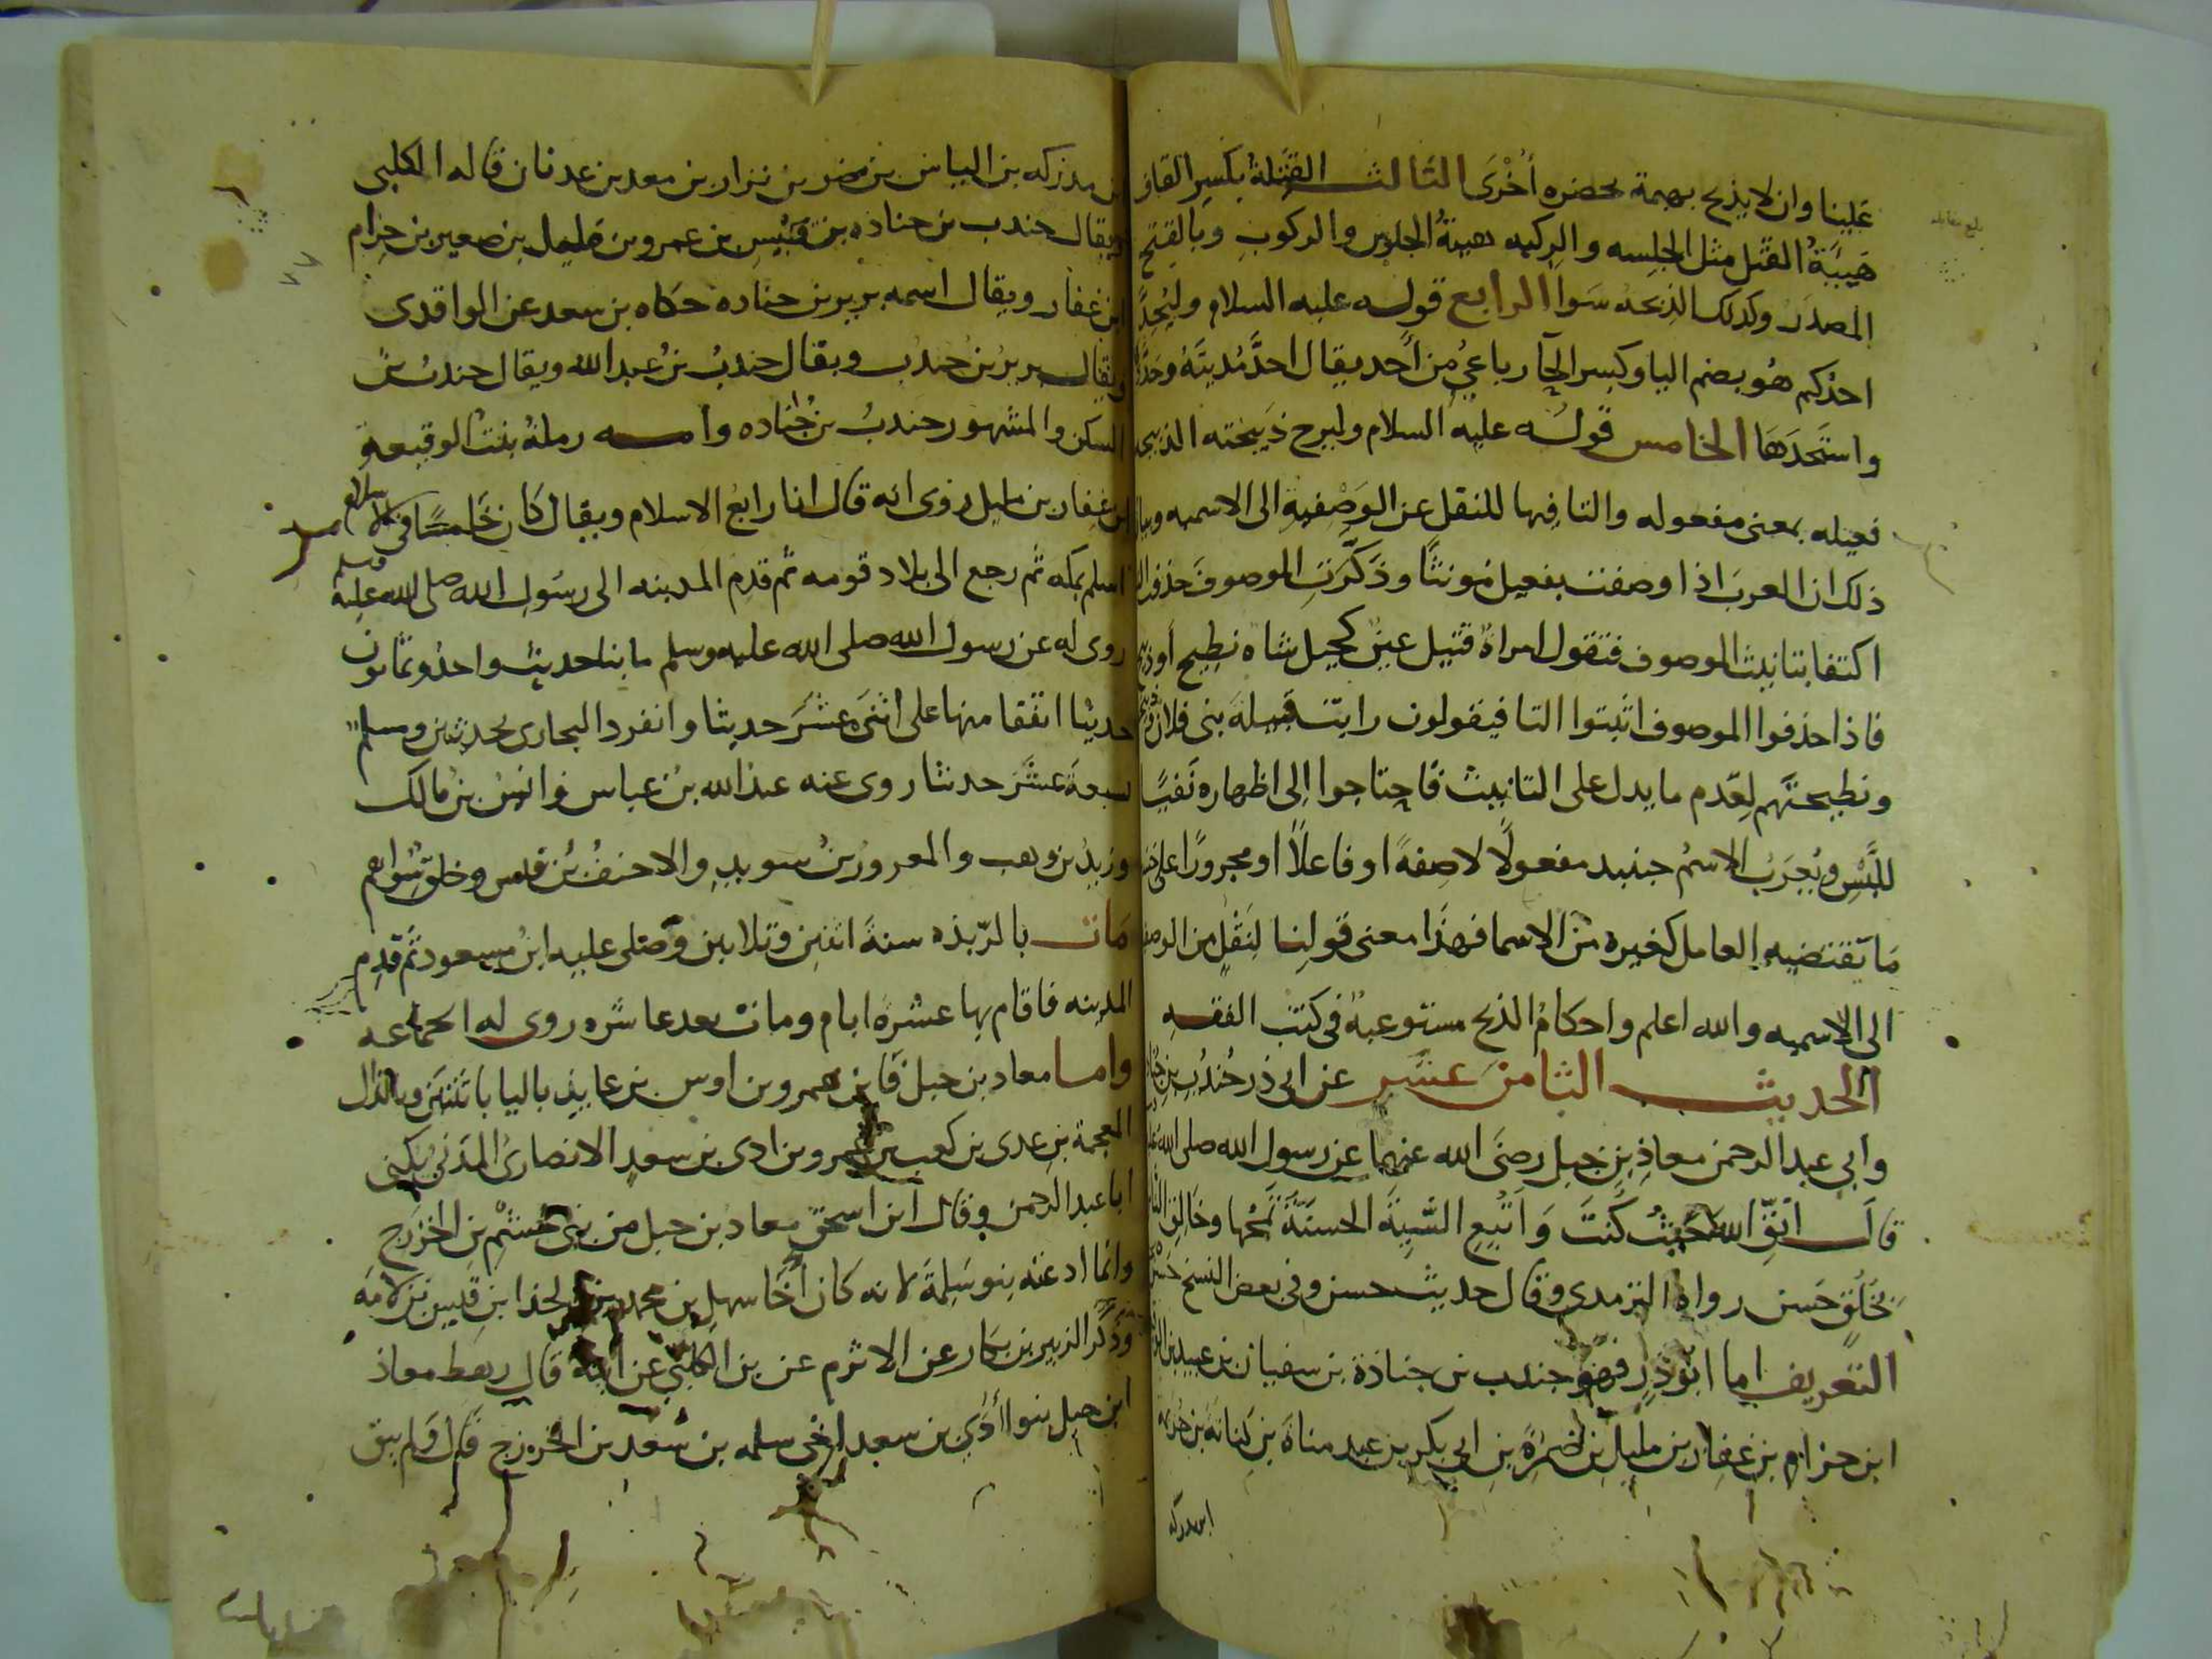 علينا وان لا يذبح بهيمة بحضره أخرى الثالث القتلة بكسر القاف
هيبة القتل مثل الجلسه والركبه هيئة الجلوس والركوب وبالفتح
المصدر وكذلك الذبحه سوا الرابع قوله عليه السلام وليحد
احدكم هو بضم اليا وكسر الحآ رباعي من احد يقال احد مديته وحدها
واستحدها الخامس قوله عليه السلام وليرح ذبيحته الذبيحه
فعيله بمعنى مفعوله والتا فيها للنقل عن الوصفية الى الاسميه وبيان
ذلك ان العرب اذا وصفت بفعيل مونثا وذكرت الموصوف حذفوا التا
اكتفا بتانيث الموصوف فتقول امراة قتيل عين كحيل شاه نطيح أو
فاذا حذفوا الموصوف اثبتوا التا فيقولون رايت قبيلة بني فلان
ونطيحتهم لعدم ما يدل على التانيث فاحتاجوا إلى اظهاره نفيا
للبس ويعرب الاسم حينيد مفعولا لا صفة او فاعلا او مجرورا على
ما يقتضيه العامل كغيره من الاسما فهذا معنى قولنا لنقل من الوصفيه
الى الاسميه والله اعلم واحكام الذبح مستوعبة في كتب الفقه
الحديث الثامن عشر عن ابى ذر جندب بن جناده
وابي عبد الرحمن معاذ بن جبل رضى الله عنهما عن رسول الله صلى الله عليه
قال اتق الله حيث كنت واتبع السية الحسنة تمحها وخالق الناس
بخلق حسن رواه الترمدي وقال حديث حسن وفى بعض النسخ حسن
التعريف اما ابو ذر فهو جندب بن جنادة بن سفيان بن عبيد بن
ابن حزام بن غفار بن مليل بن ضمرة بن ابي بكر بن عبد مناة بن كنانة بن خزيمه
ابن مدركه
بن مدركه بن الياس بن مضر بن نزار بن معد بن عدنان قاله الكلبى
ويقال جندب بن جناده بن قيس بن عمرو بن مليل بن صعير بن حزام
ابن غفار ويقال اسمه برير بن جناده حكاه بن سعد عن الواقدى
ويقال برير بن جندب ويقال جندب بن عبد الله ويقال جندب بن
السكن والمشهور جندب بن جناده وامه رملة بنت الوقيعة
بن غفار بن مليل روى انه قال انا رابع الاسلام ويقال كان خامسا فى الاسلام
اسلم بمكه ثم رجع الى بلاد قومه ثم قدم المدينه الى رسول الله صلى الله عليه وسلم
روى له عن رسول الله صلى الله عليه وسلم مايتا حديث واحد وثمانون
حديثا اتفقا منها على اثنى عشر حديثا وانفرد البخارى بحديثين ومسلم
بسبعة عشر حديثا روى عنه عبد الله بن عباس وانس بن مالك
وزيد بن وهب والمعرور بن سويد والاحنف بن قيس وخلق سواهم
مات بالربذه سنة اثنين وثلاثين وصلى عليه ابن مسعود ثم قدم
المدينه فاقام بها عشرة ايام ومات بعد عاشره روى له الجماعه
واما معاد بن جبل فابن عمرو بن اوس بن عايذ باليا باثنتين وبالذال
المعجمة بن عدى بن كعب بن عمرو بن ادى بن سعد الانصارى المدني يكنى
ابا عبد الرحمن وقال ابن اسحق معاد بن جبل من بنى جشم بن الخزرج
وانما ادعته بنو سلمة لانه كان أخا سهل بن محمد بن الجد ابن قيس بن لامه
وذكر الزبير بن بكار عن الاثرم عن بن الكلبي عن ابيه قال رهط معاذ
ابن جبل بنوا أدي بن سعد اخى سلمه بن سعد بن الخزرج قال ولم يبق